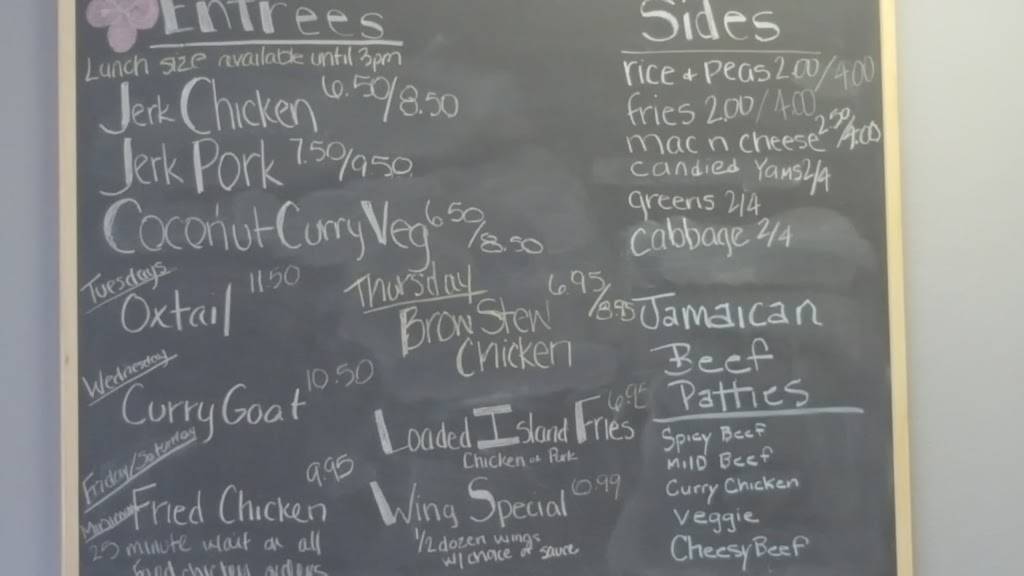 Entrees
Lunch size available until 3pm
Jerk Chicken 6.50/8.50
Jerk Pork 7.50/9.50
Coconut Curry Veg 6.50/8.50
Tuesdays
Oxtail 11.50
Wednesday
Curry Goat 10.50
Friday/Saturday
Fried Chicken 9.95
25 minute wait on all
fried chicken orders
Thursday
Brow Stew 6.95/8.95
Chicken
Loaded Island Fries 6.95
Chicken or Pork
Wing Special 6.99
1/2 dozen wings
w/ choice of sauce
Sides
rice + peas 2.00/4.00
fries 2.00/4.00
mac n cheese 2.50/4.00
candied Yams 2/4
greens 2/4
cabbage 2/4
Jamaican
Beef
Patties
Spicy Beef
Mild Beef
Curry Chicken
Veggie
Cheesy Beef